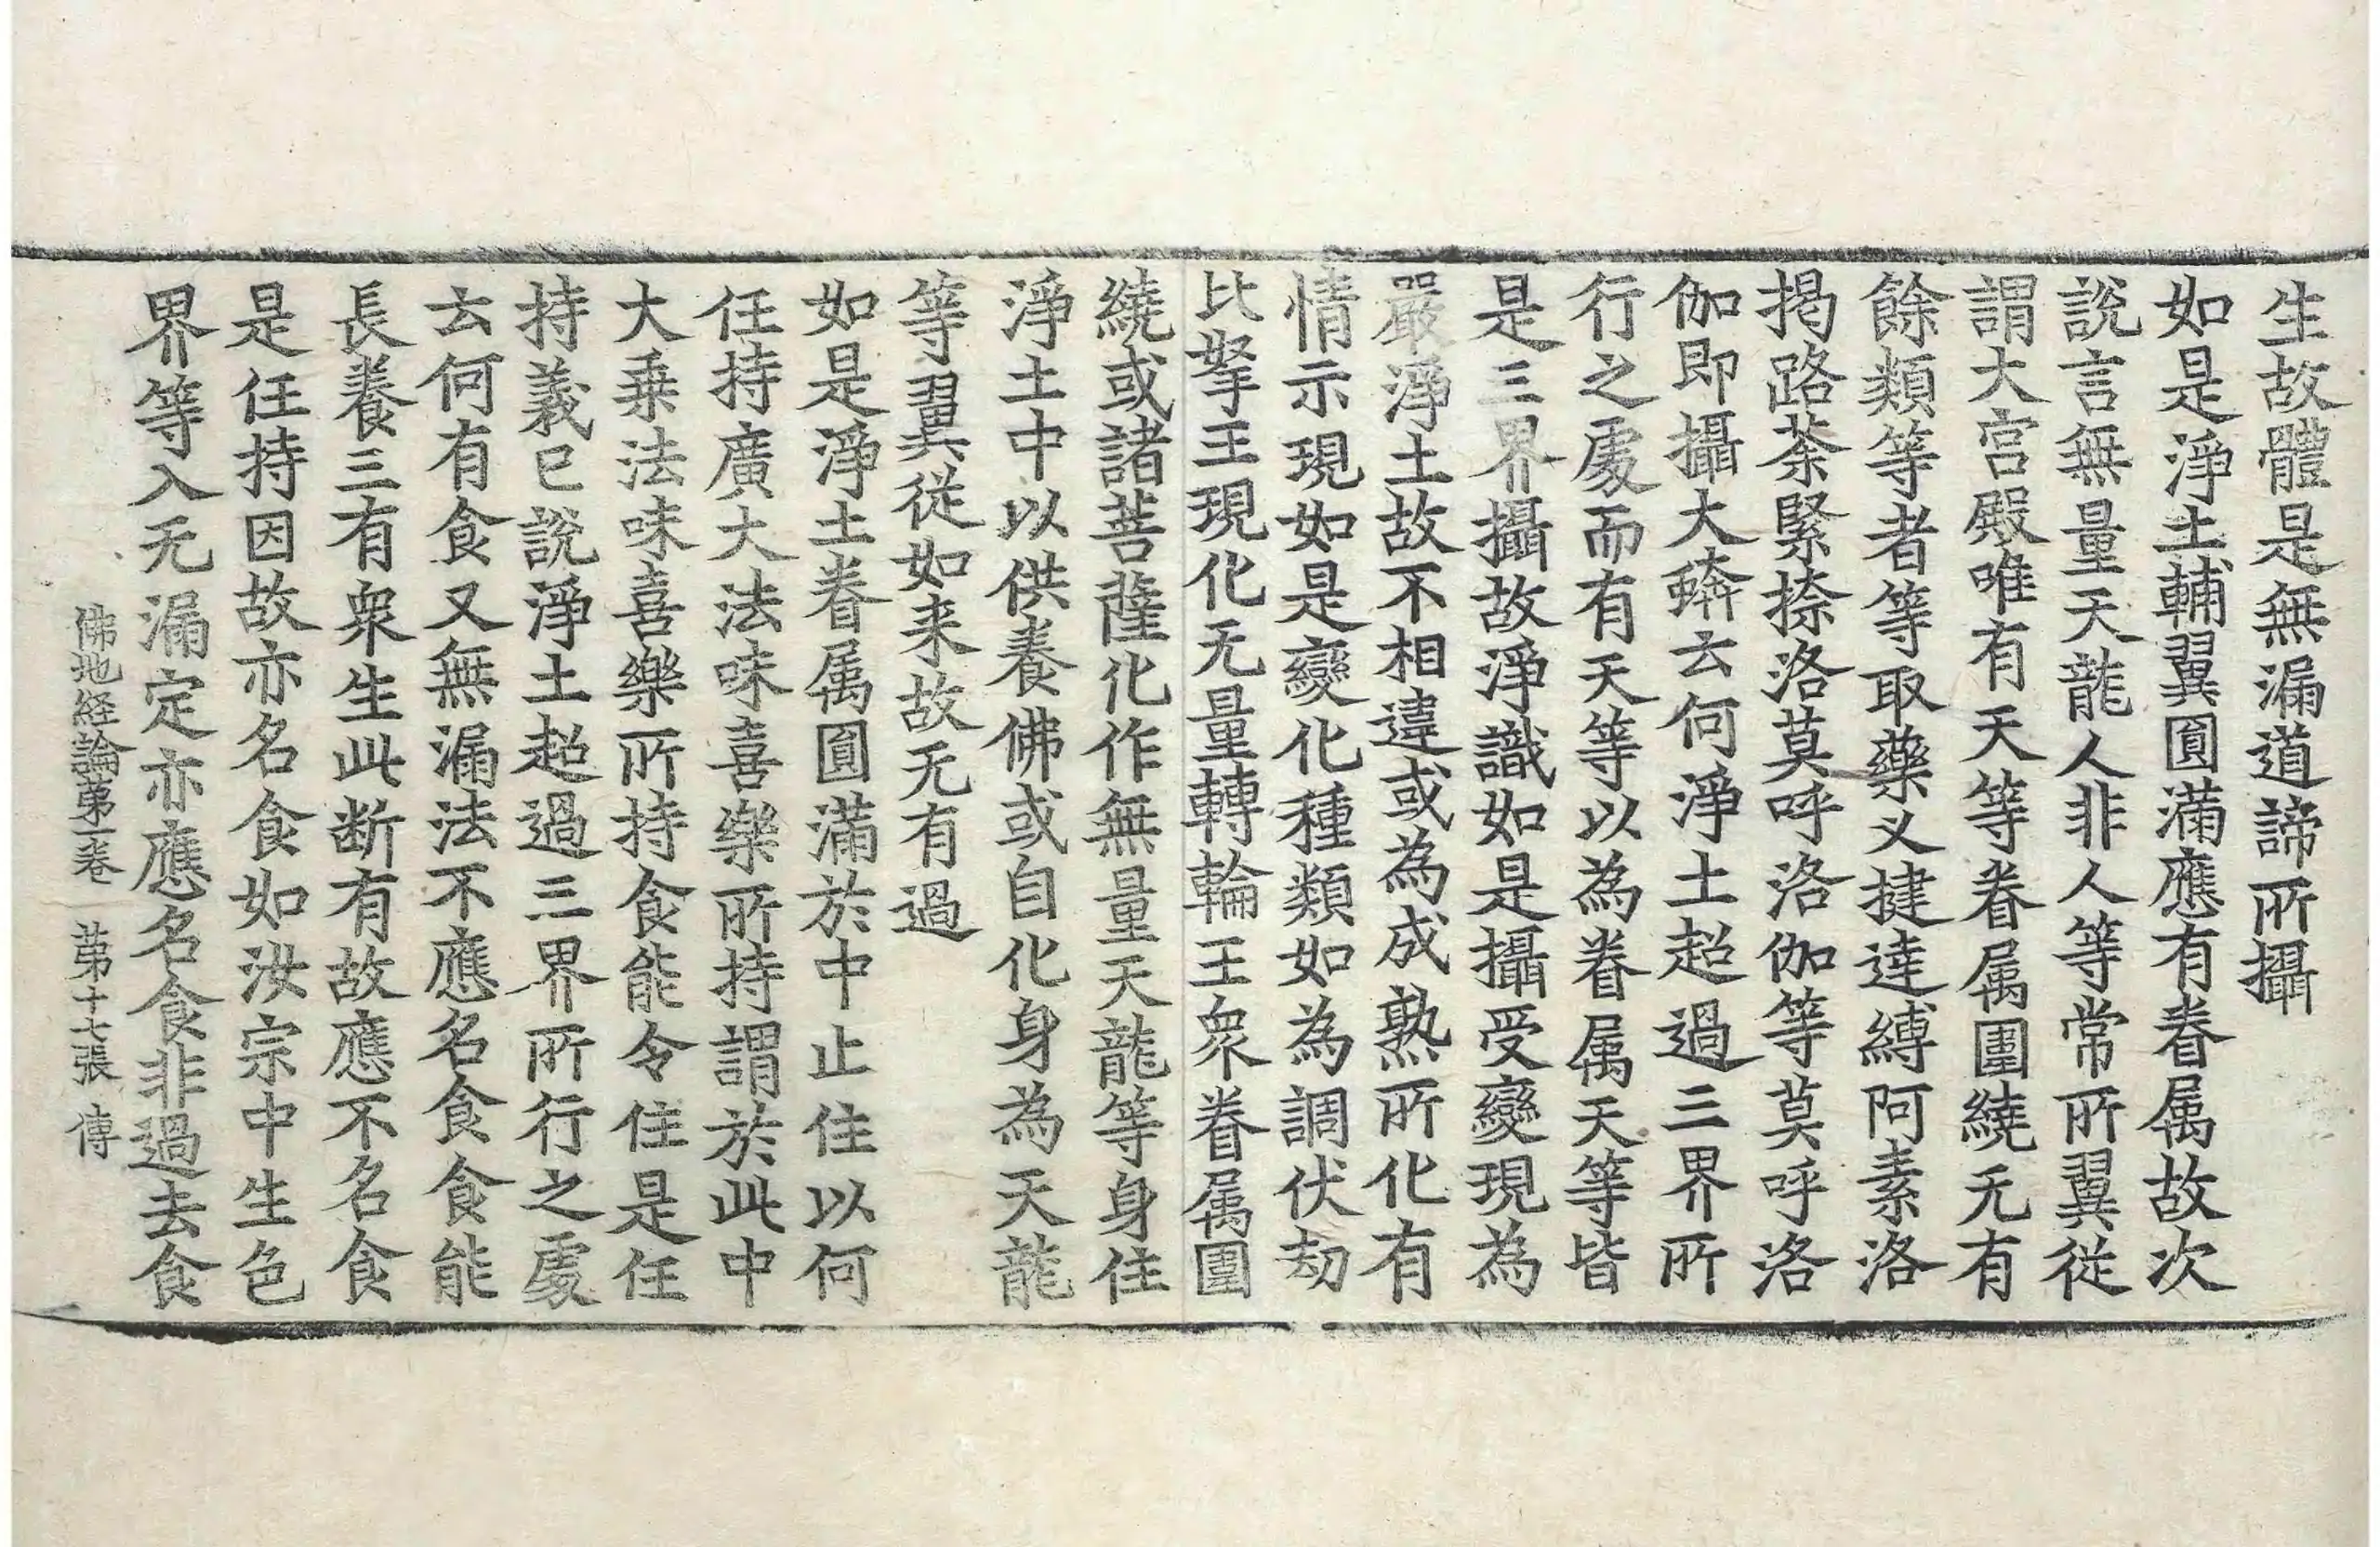 生故體是無漏道諦所攝
如是淨土輔翼圓滿應有眷属故次
說言無量天龍人非人等常所翼從
謂大宮殿唯有天等眷属圍繞无有
餘類等者等取藥叉揵達縛阿素洛
揭路荼緊捺洛莫呼洛伽等莫呼洛
伽即攝大蟒云何淨土超過三界所
行之處而有天等以為眷属天等皆
是三界攝故淨識如是攝受變現為
嚴淨土故不相違或為成熟所化有
情示現如是變化種類如為調伏劫
比拏王現化无量轉輪王衆眷属圍
繞或諸菩薩化作無量天龍等身住
淨土中以供養佛或自化身為天龍
等翼從如来故无有過
如是淨土眷属圓滿於中止住以何
任持廣大法味喜樂所持謂於此中
大乗法味喜樂所持食能令住是任
持義已說淨土超過三界所行之處
云何有食又無漏法不應名食食能
長養三有衆生此断有故應不名食
是任持因故亦名食如汝宗中生色
界等入无漏定亦應名食非過去食
佛地経論苐一卷 苐十七張 傳